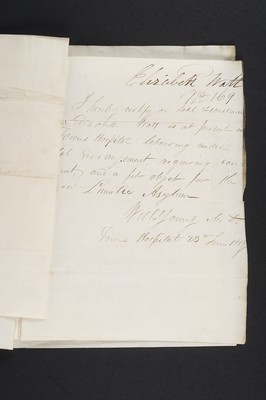 Elizabeth Watt
No 169
I hereby certify on Soul & Conscience
Elizabeth Watt is at present in
Hospital labouring under
Derangement requiring con
and a fit object for the
Lunatic Asylum
Young M.D.
Hospital 23d June